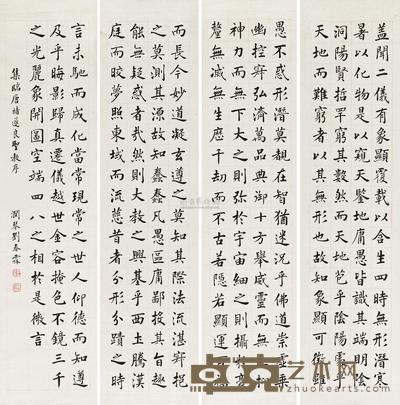 盖聞二儀有象顯覆載以含生四時無形潛寒
暑以化物是以窺天鑒地庸愚皆識其端明陰
洞陽賢哲罕窮其數然而天地苞乎陰陽處乎
天地而難窮者以其無形也故知象顯可徵雖
愚不惑形潛莫覩在智猶迷況乎佛道崇虛乘
幽控寂弘濟萬品典御十方舉威靈而無上抑
神力而無下大之則弥於宇宙細之則攝於豪
釐無滅無生歷千劫而不古若隱若顯運百福
而長今妙道凝玄遵之莫知其際法流湛寂挹
之莫測其源故知蠢蠢凡愚區區庸鄙投其旨趣
能無疑惑者哉然則大教之興基乎西土騰漢
庭而皎夢照東域而流慈昔者分形分蹟之時
言未馳而成化當常現常之世人仰德而知遵
及乎晦影歸真遷儀越世金容掩色不鏡三千
之光麗象開圖空端四八之相於是微言
集臨唐褚遂良聖教序
潤琴劉春霖